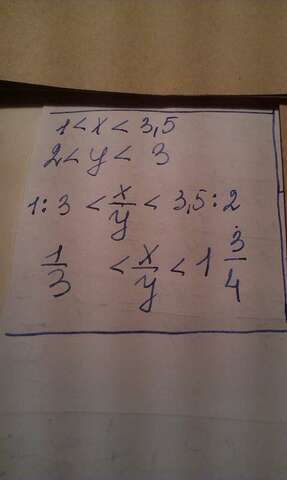 1 < x < 3,5
2 < y < 3
1 : 3 < x/y < 3,5 : 2
1/3 < x/y < 1 3/4